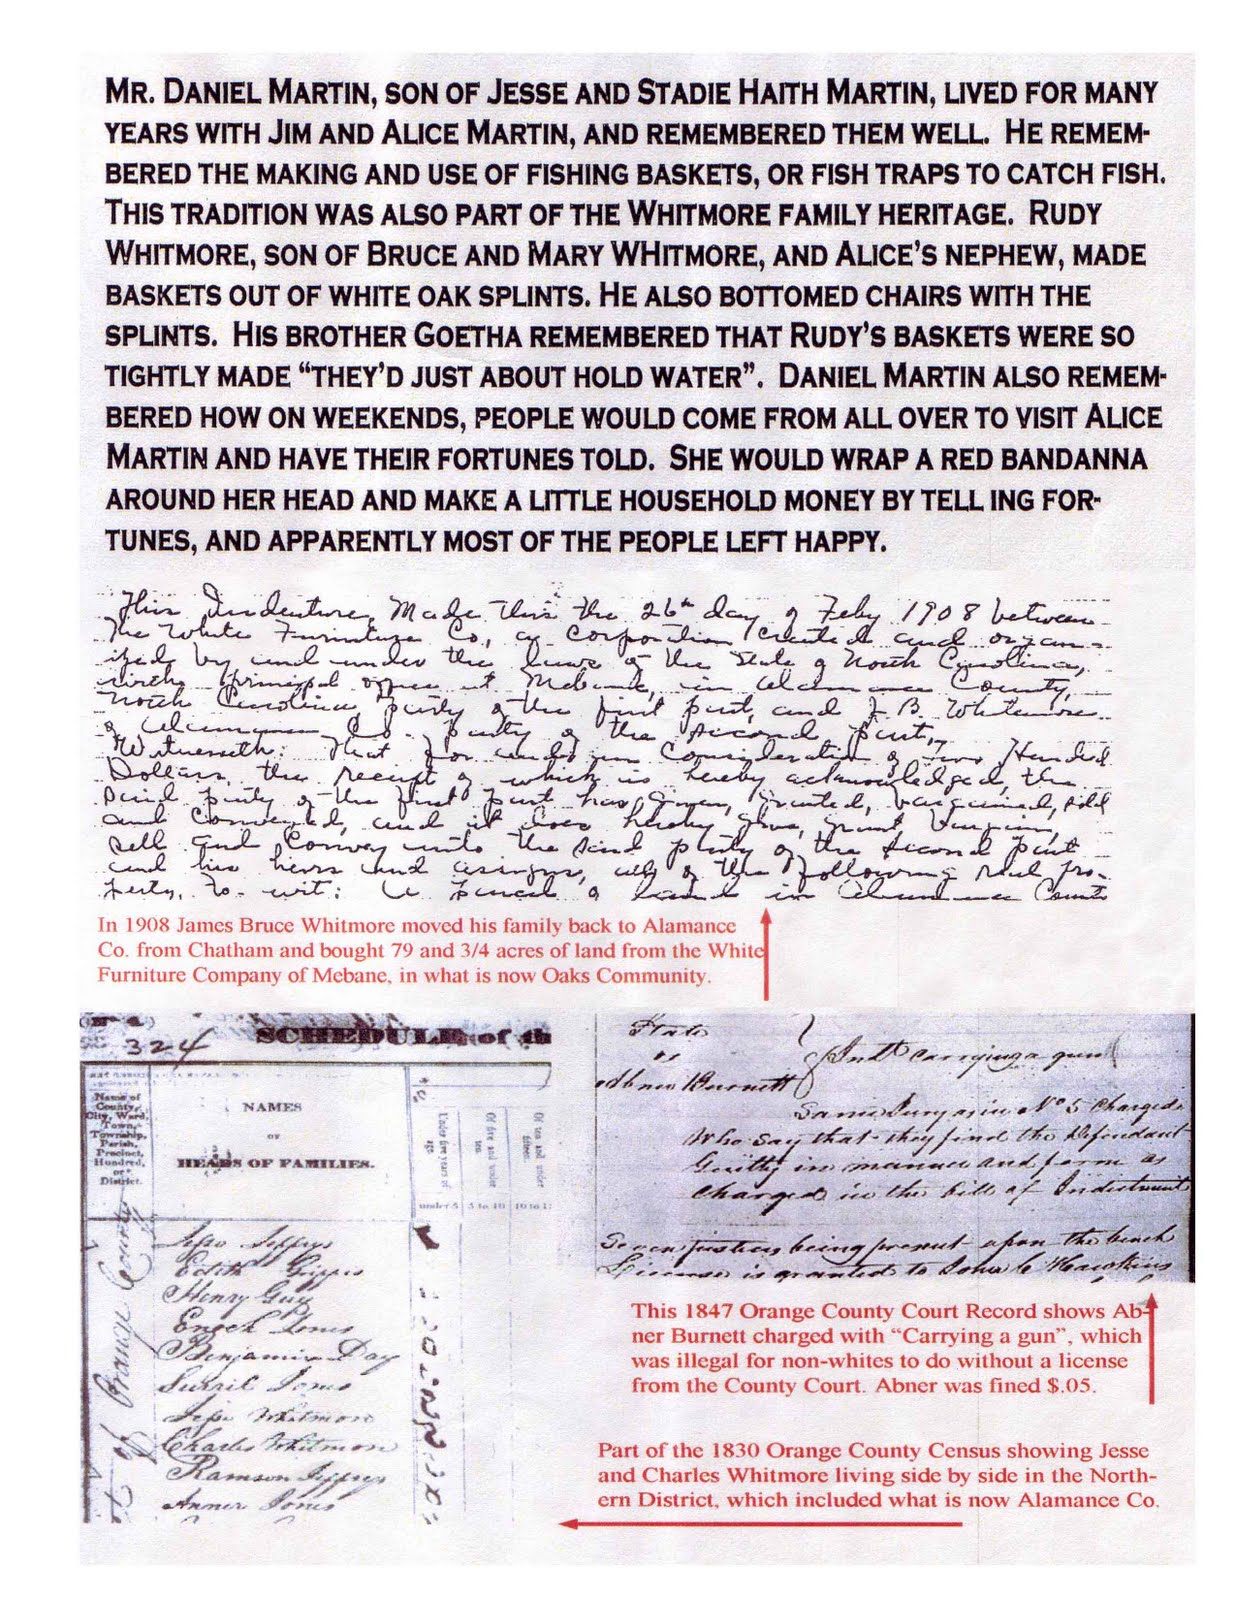 MR. DANIEL MARTIN, SON OF JESSE AND STADIE HAITH MARTIN, LIVED FOR MANY
YEARS WITH JIM AND ALICE MARTIN, AND REMEMBERED THEM WELL. HE REMEM-
BERED THE MAKING AND USE OF FISHING BASKETS, OR FISH TRAPS TO CATCH FISH.
THIS TRADITION WAS ALSO PART OF THE WHITMORE FAMILY HERITAGE. RUDY
WHITMORE, SON OF BRUCE AND MARY WHITMORE, AND ALICE'S NEPHEW, MADE
BASKETS OUT OF WHITE OAK SPLINTS. HE ALSO BOTTOMED CHAIRS WITH THE
SPLINTS. HIS BROTHER GOETHA REMEMBERED THAT RUDY'S BASKETS WERE SO
TIGHTLY MADE "THEY'D JUST ABOUT HOLD WATER". DANIEL MARTIN ALSO REMEM-
BERED HOW ON WEEKENDS, PEOPLE WOULD COME FROM ALL OVER TO VISIT ALICE
MARTIN AND HAVE THEIR FORTUNES TOLD. SHE WOULD WRAP A RED BANDANNA
AROUND HER HEAD AND MAKE A LITTLE HOUSEHOLD MONEY BY TELL ING FOR-
TUNES, AND APPARENTLY MOST OF THE PEOPLE LEFT HAPPY.
This Indenture, Made this the 26th day of Feby 1908 between
The White Furniture Co., a corporation created and organ-
ized by and under the laws of the State of North Carolina,
with principal office at Mebane, in Alamance County,
North Carolina party of the first part, and J. B. Whitemore
of Alamance Co. party of the second part,
Witnesseth: That for and in consideration of Two Hundred
Dollars, the receipt of which is hereby acknowledged, the
said party of the first part has given, granted, bargained, sold
and conveyed, and it does hereby give, grant bargain,
sell and convey unto the said party of the second part
and his heirs and assigns, all of the following real pro-
perty, to-wit: A parcel of land in Alamance County
In 1908 James Bruce Whitmore moved his family back to Alamance
Co. from Chatham and bought 79 and 3/4 acres of land from the White
Furniture Company of Mebane, in what is now Oaks Community.
324
SCHEDULE of th
Name of
County,
City, Ward,
Town,
Township,
Parish,
Precinct,
Hundred,
or
District.
NAMES
OF
HEADS OF FAMILIES.
Under five years of
age.
Of five and under
ten.
Of ten and under
fifteen.
under 5 5 to 10 10 to 1
of Orange County
Jeffrys
Edith
Henry Guy
Enoch Jones
Benjamin Day
Jones
Whitmore
Charles Whitmore
Ramson Jeffrys
Jones
State
vs
Abner Burnett
Indt carrying a gun
Same Jury as in No 5 charged
Who say that they find the Defendant
Guilty in manner and form as
charged in the bill of Indictment
Seven justices being present upon the bench
License is granted to John C Hawkins
This 1847 Orange County Court Record shows Ab-
ner Burnett charged with “Carrying a gun”, which
was illegal for non-whites to do without a license
from the County Court. Abner was fined $.05.
Part of the 1830 Orange County Census showing Jesse
and Charles Whitmore living side by side in the North-
ern District, which included what is now Alamance Co.